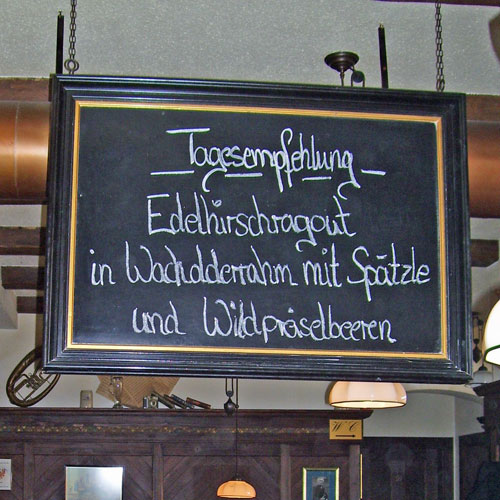 Tagesempfehlung
Edelhirschragout
in Wacholderrahm mit Spätzle
und Wildpreiselbeeren
WC